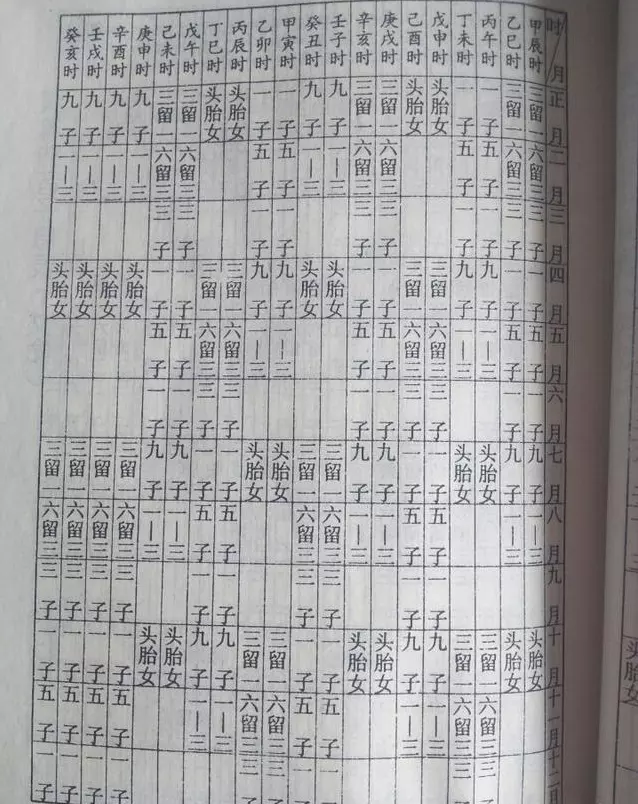 时/月 正月 二月 三月 四月 五月 六月 七月 八月 九月 十月 十一月 十二月
甲辰时 三留一 六留三 三子 一子 五子 一子 九子 一—三 头胎女
乙巳时 三留一 六留三 三子 一子 五子 一子 九子 一—三 头胎女
丙午时 一子 五子 一子 九子 一—三 头胎女 三留一 六留三 三
丁未时 一子 五子 一子 九子 一—三 头胎女 三留一 六留三 三
戊申时 头胎女 三留一 六留三 三子 一子 五子 一子 九子 一—三
己酉时 头胎女 三留一 六留三 三子 一子 五子 一子 九子 一—三
庚戌时 三留一 六留三 头胎女
辛亥时 三留一 六留三 头胎女
壬子时 九子 一—三 头胎女 三留一 六留三 三子 一子 五子 一
癸丑时 九子 一—三 头胎女 三留一 六留三 三子 一子 五子 一
甲寅时 一子 五子 一子 九子 一—三 头胎女 三留一 六留三 三
乙卯时 一子 五子 一子 九子 一—三 头胎女 三留一 六留三 三
丙辰时 头胎女 三留一 六留三 三子 一子 五子 一子 九子 一—三
丁巳时 头胎女 三留一 六留三 三子 一子 五子 一子 九子 一—三
戊午时 三留一 六留三 三子 一子 五子 一子 九子 一—三 头胎女
己未时 三留一 六留三 三子 一子 五子 一子 九子 一—三 头胎女
庚申时 九子 一—三 头胎女 三留一 六留三 三子 一子 五子 一子
辛酉时 九子 一—三 头胎女 三留一 六留三 三子 一子 五子 一子
壬戌时 九子 一—三 头胎女 三留一 六留三 三子 一子 五子 一子
癸亥时 九子 一—三 头胎女 三留一 六留三 三子 一子 五子 一子